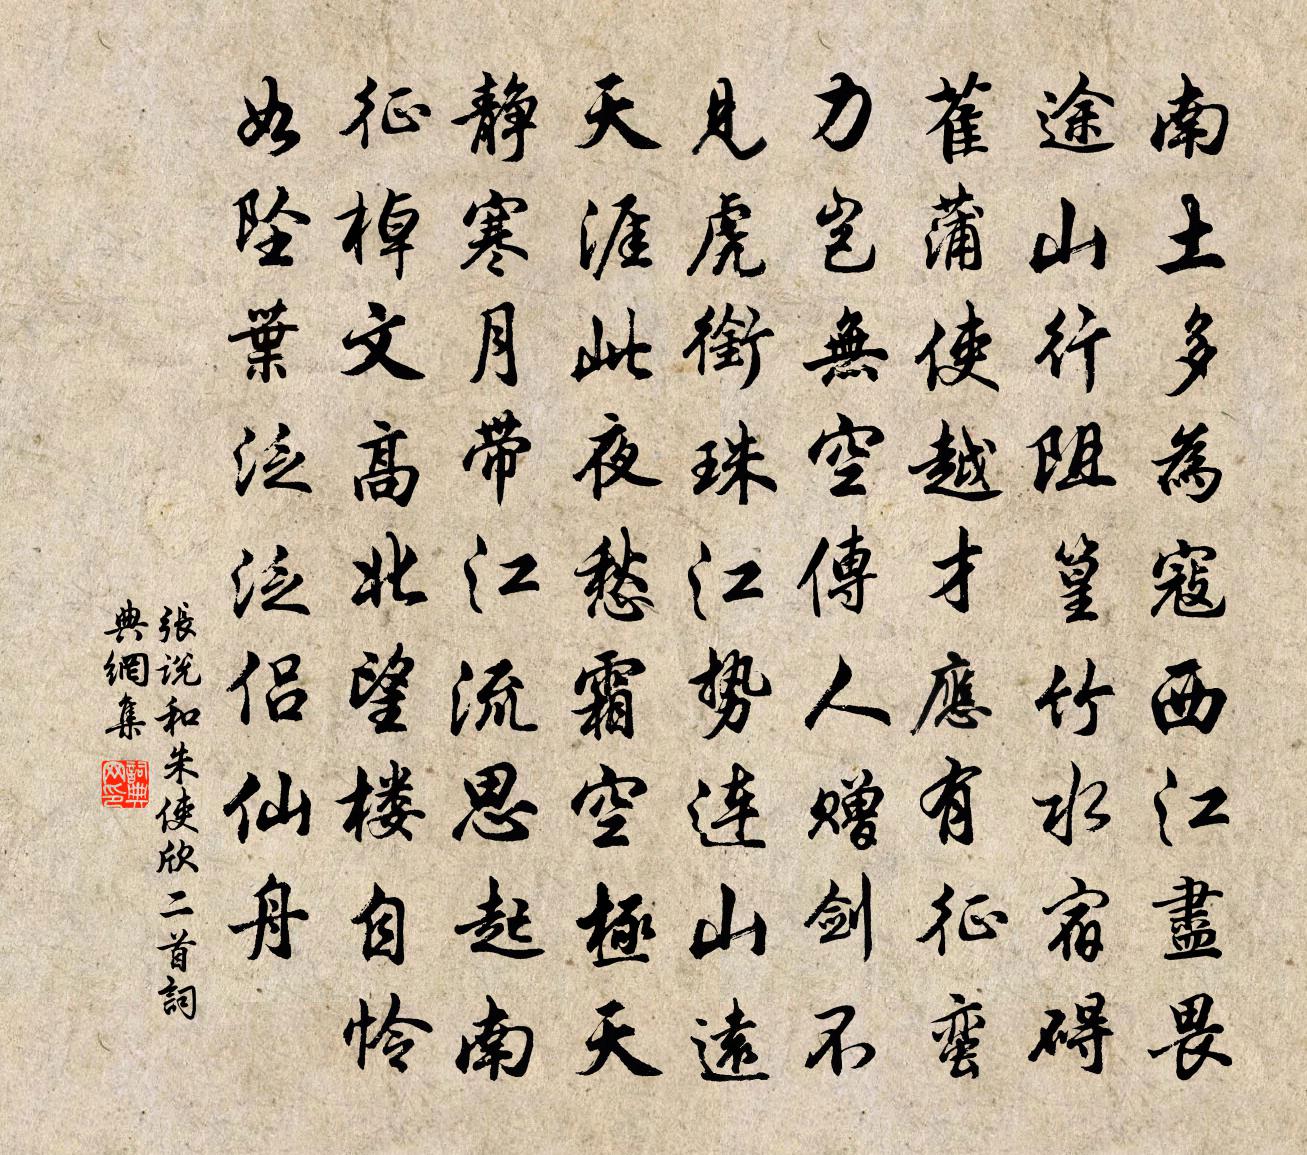 南土多為寇西江盡畏
途山行阻篁竹水宿礙
萑蒲使越才應有征蠻
力豈無空傳人贈劍不
見虎銜珠江势連山遠
天涯此夜愁霜空極天
靜寒月帶江流思起南
征棹文高北望楼自憐
如坠葉泛泛侣仙舟
張説和朱使欣二首詞
典網集
詞典
网印